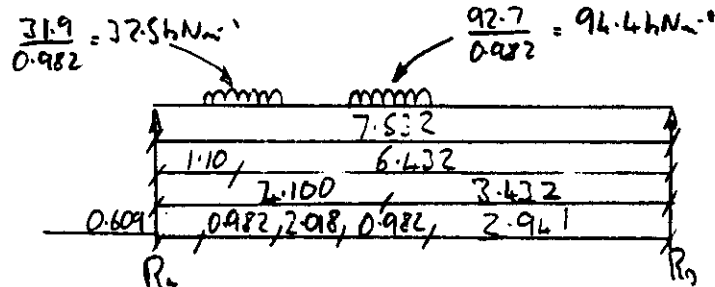 31.9/0.982 = 32.5kNm⁻¹
92.7/0.982 = 94.4kNm⁻¹
7.532
1.10 6.432
4.100 3.432
0.609 0.982 2.018 0.982 2.941
R_A R_B